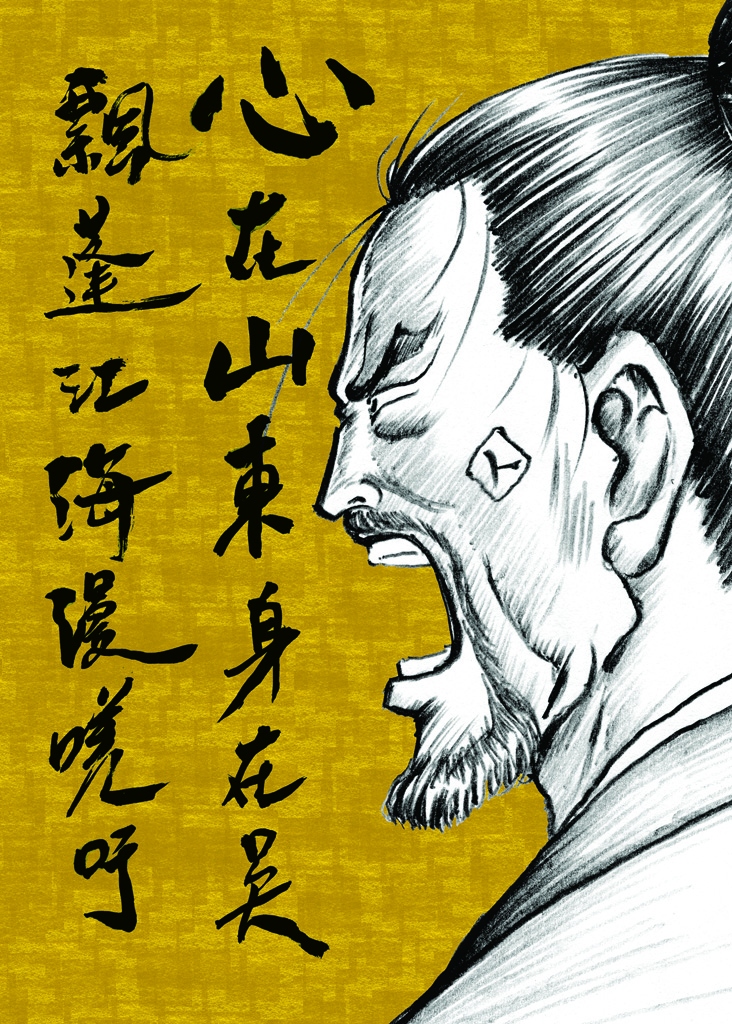 心在山東身在吴
飄蓬江海漫嗟吁